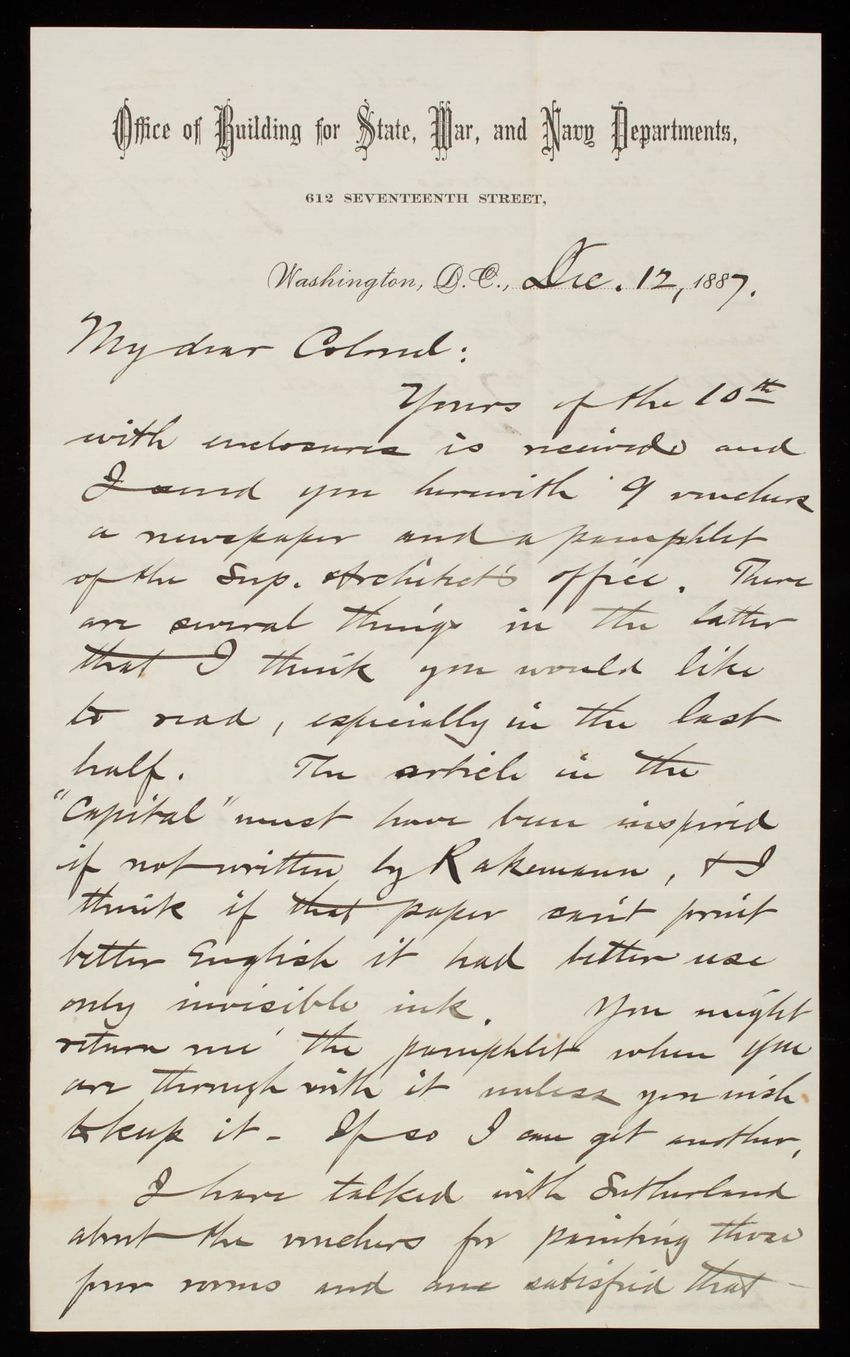 Office of Building for State, War, and Navy Departments,
612 SEVENTEENTH STREET,
Washington, D.C., Dec. 12, 1887.
My dear Colonel:
Yours of the 10th
with enclosures is received and
I send you herewith 9 vouchers
a newspaper and a pamphlet
of the Sup. Architect's office. There
are several things in the latter
that I think you would like
to read, especially in the last
half. The article in the
"Capital" must have been inspired
if not written by Rakemann, & I
think if that paper can't print
better English it had better use
only invisible ink. You might
return me the pamphlet when you
are through with it unless you wish
to keep it - If so I can get another.
I have talked with Sutherland
about the vouchers for painting those
four rooms and am satisfied that